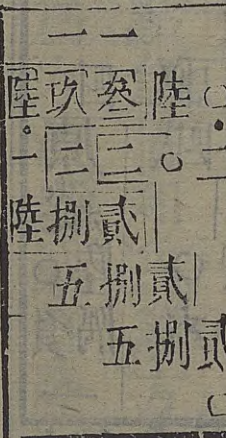 一一
陸玖叄陸○
·一二二○·二
陸捌貳
五捌貳
五捌貳